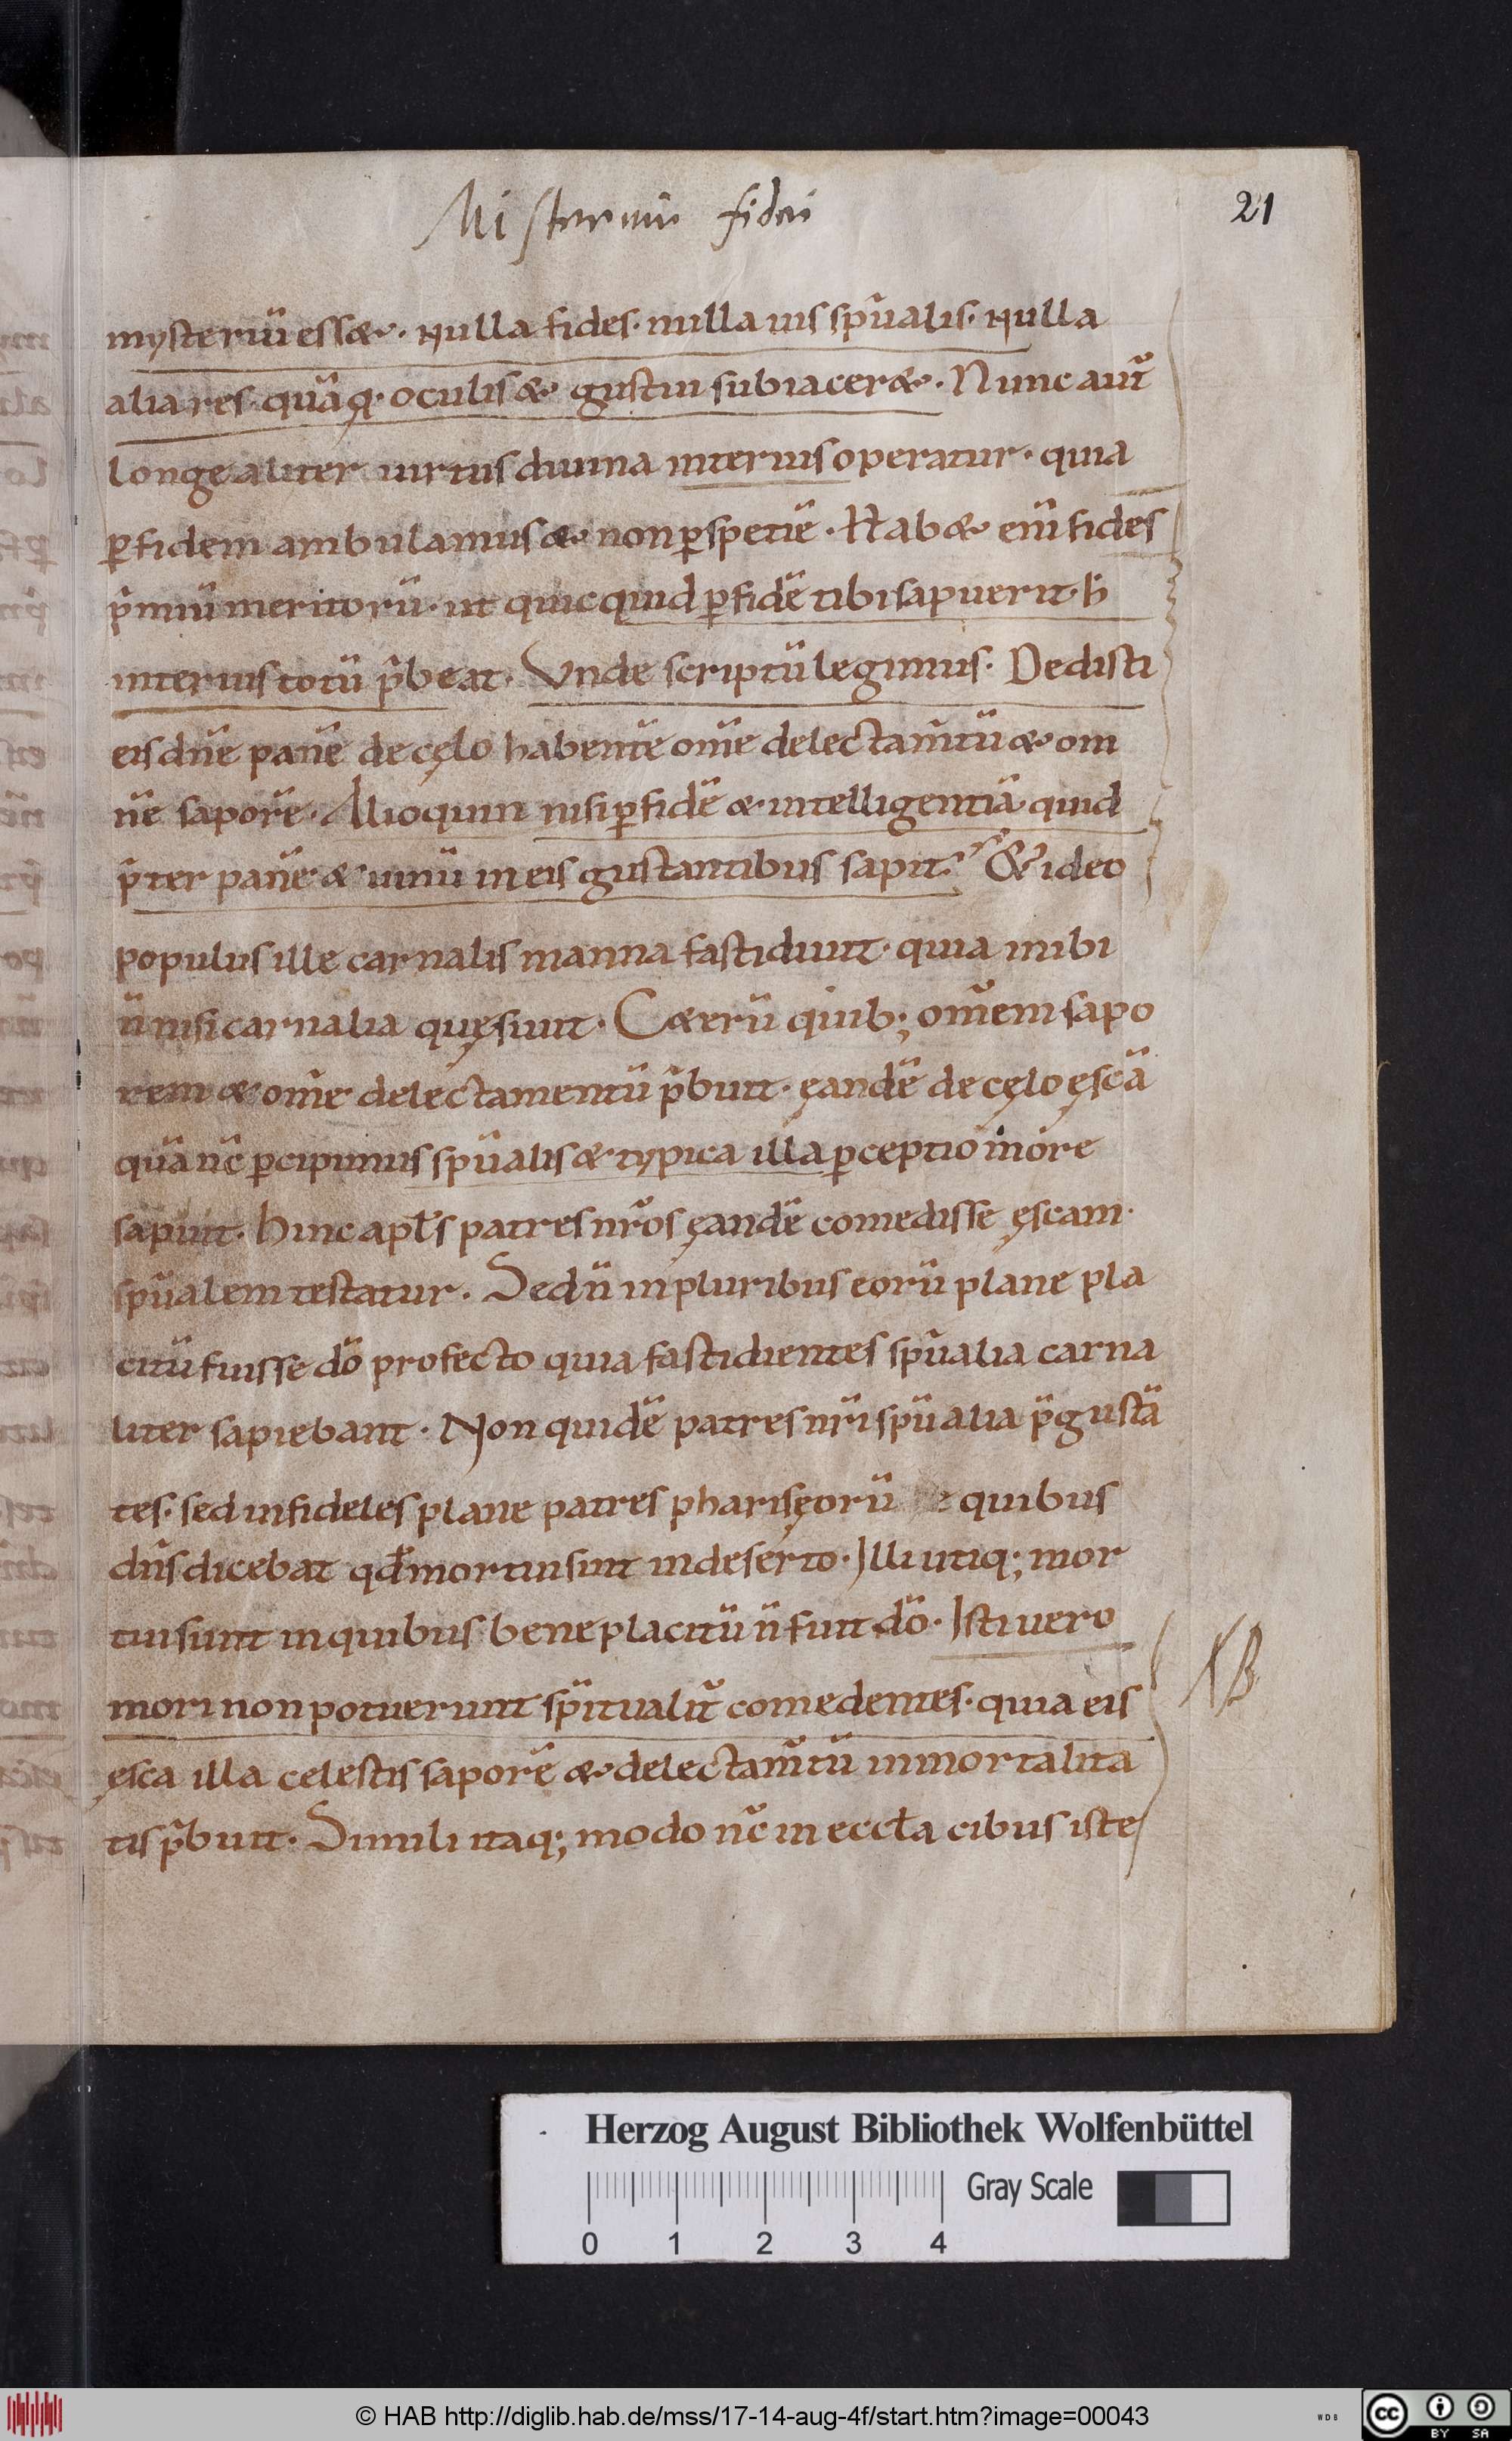 Misteriũ fidei
21
mysteriũ essæt. Nulla fides. nulla uis spũalis. Nulla
alia res. quã q̃. oculis & gustui subiaceret. Nunc aũt
longe aliter uirtus diuina interius operatur. quia
ꝑ fidem ambulamus & non ꝑ spetiẽ. Habet enĩ fides
p̃miũ meritorũ. ut quicquid ꝑ fidẽ tibi sapuerit. h̃
interius totũ p̃beat. Vnde scriptũ legimus. Dedisti
eis dñe panẽ de cęlo habentẽ om̃e delectam̃tũ & om
nẽ saporẽ. Alioquin nisi ꝑ fidẽ & intelligentiã quid
p̃ter panẽ & uinũ in eis gustantibus sapit? Et ideo
populus ille carnalis manna fastidiuit. quia inibi
ñ nisi carnalia quęsiuit. Cæterũ quib; om̃em sapo
rem & om̃e delectamentũ p̃buit. ęandẽ de cęlo ęscã
quã nc̃ ꝑcipimus spũalis & typica illa ꝑceptio in ore
sapuit. Hinc apƚs patres nr̃os ęandẽ comedisse ęscam.
spũalem testatur. Sed ñ in pluribus eorũ plane pla
citũ fuisse dõ profecto quia fastidientes spũalia carna
liter sapiebant. Non quidẽ patres nr̃i spũalia p̃gustã
tes. sed infideles plane patres pharisęorũ e quibus
dñs dicebat qđ mortui sunt in deserto. Illi utiq; mor
tui sunt in quibus beneplacitũ ñ fuit dõ. Isti uero
mori non potuerunt sp̃itualit̃ comedentes. quia eis
ęsca illa celestis saporẽ & delectam̃tũ inmortalita
tis p̃buit. Simili itaq; modo nc̃ in eccƚa cibus iste
NB
Herzog August Bibliothek Wolfenbüttel
Gray Scale
0 1 2 3 4
© HAB http://diglib.hab.de/mss/17-14-aug-4f/start.htm?image=00043
WDB
cc BY SA